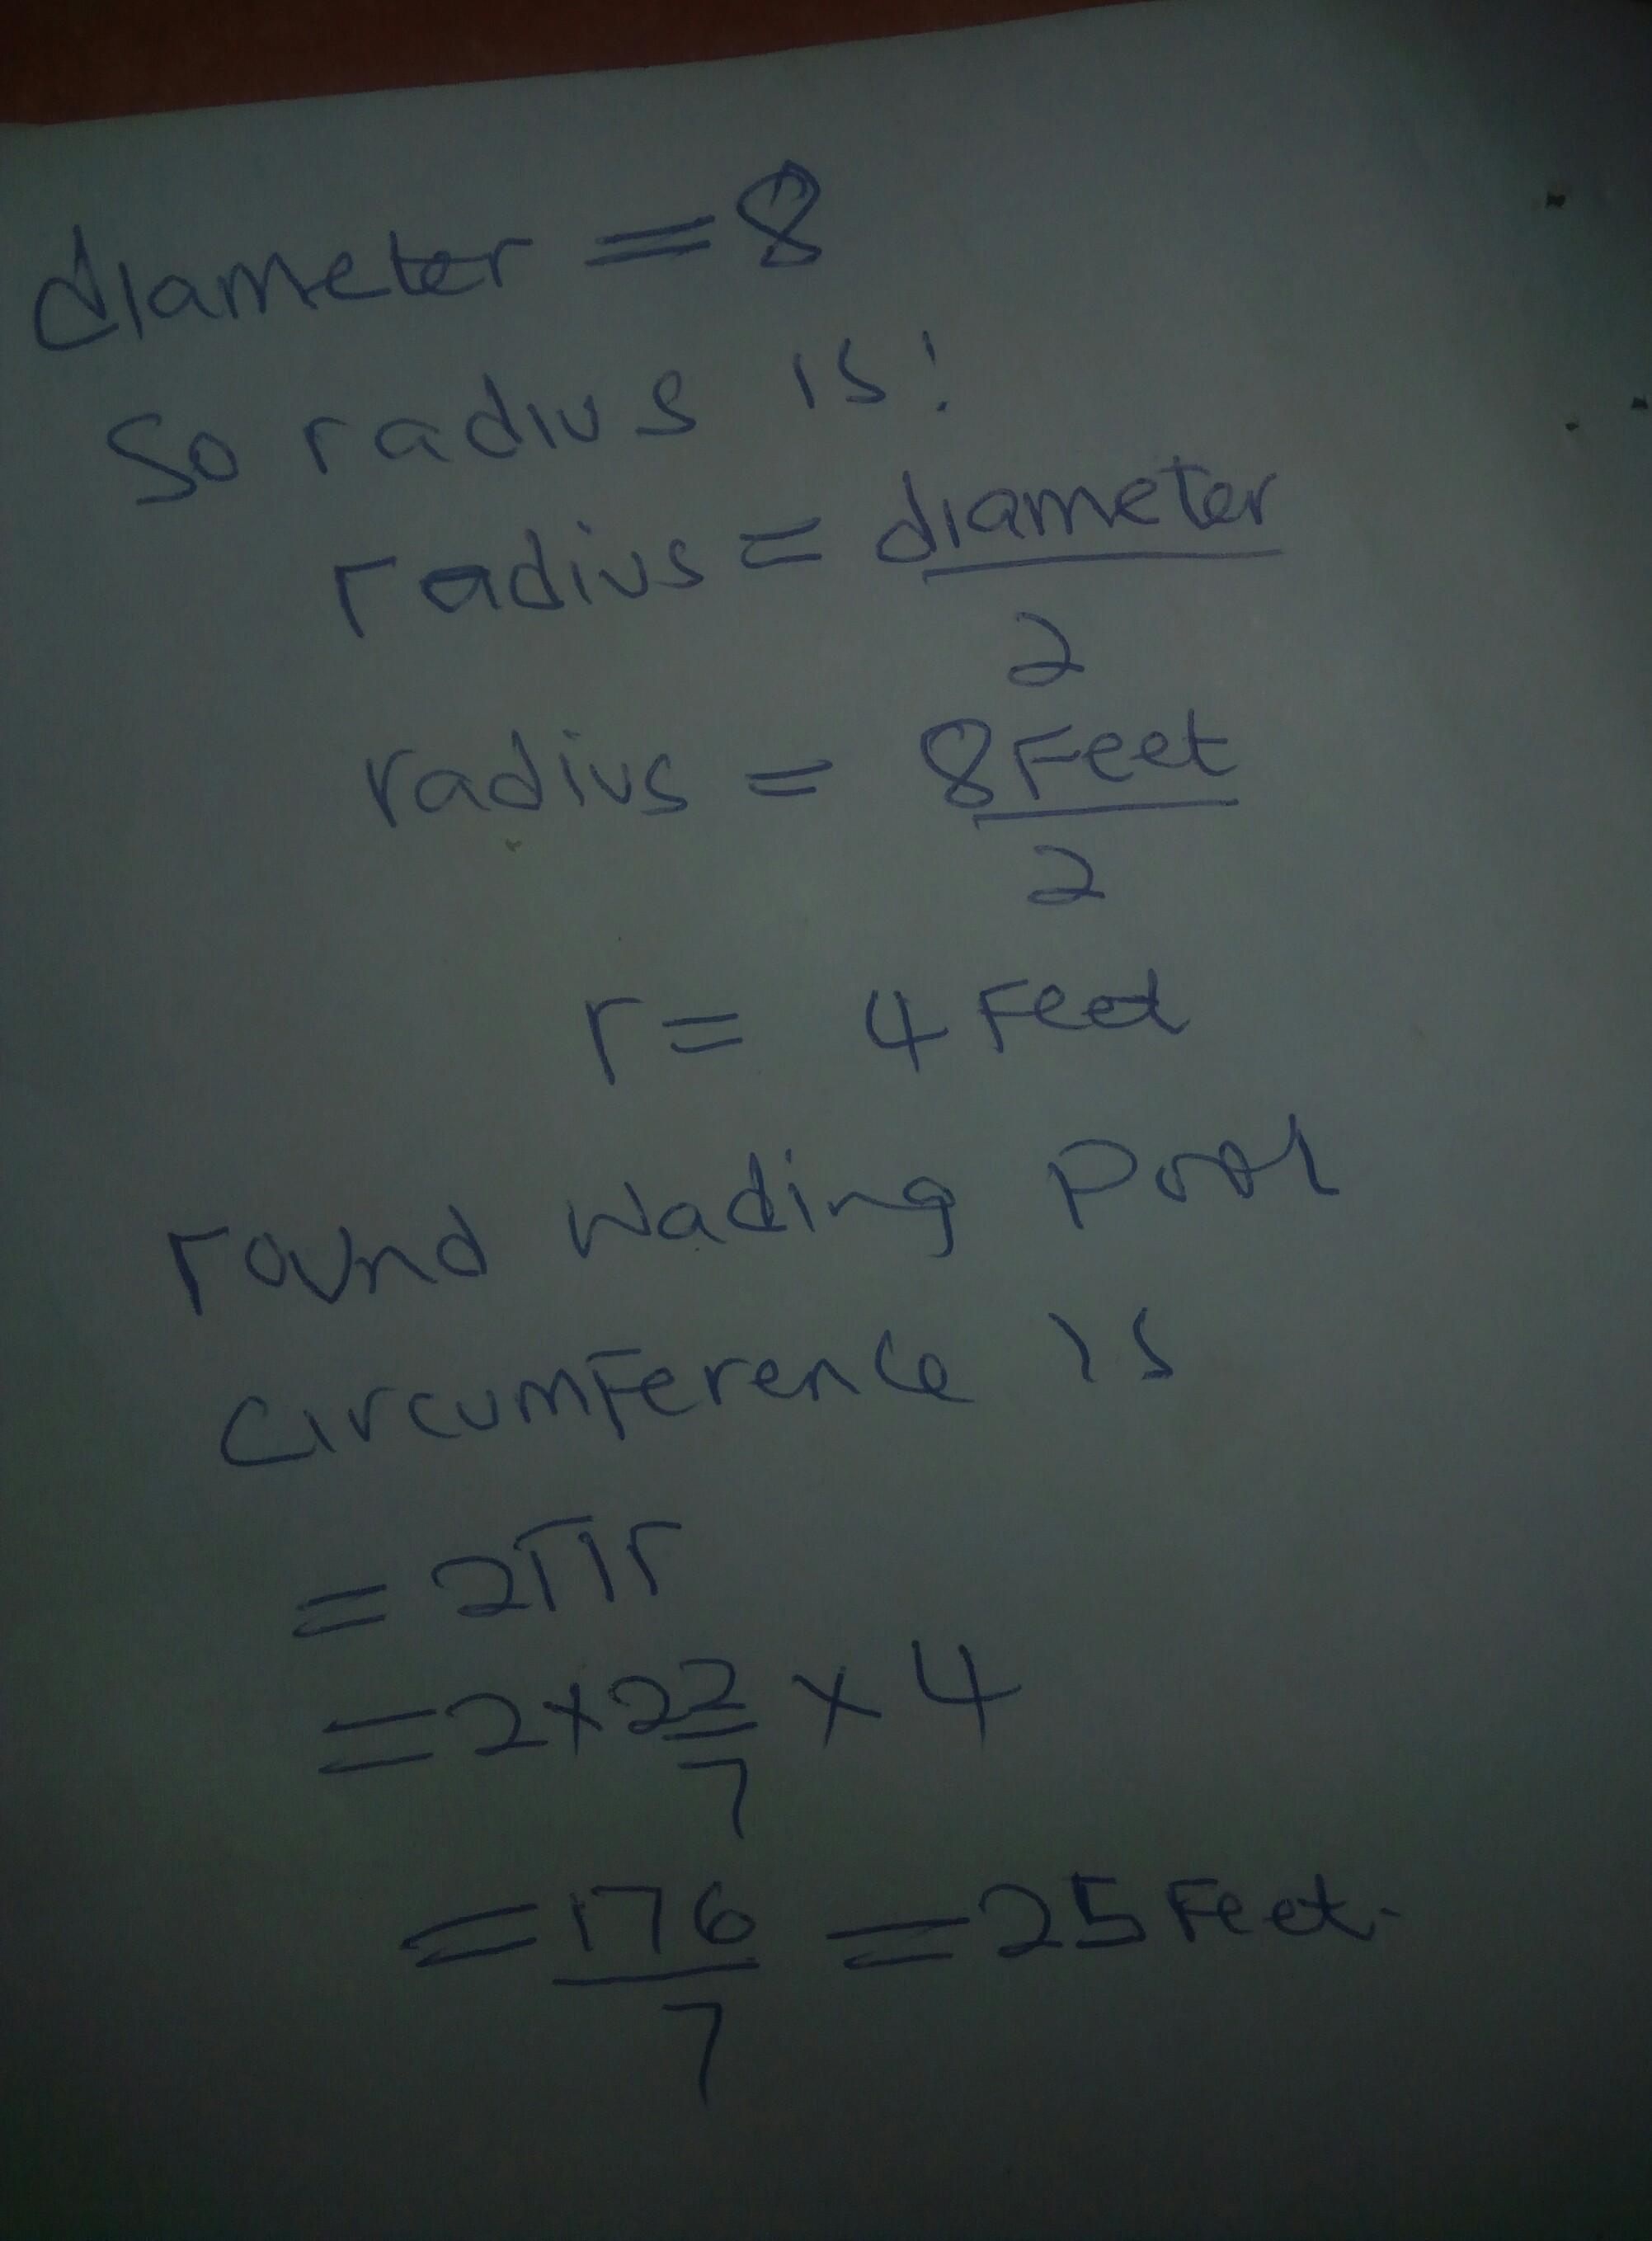 diameter = 8
So radius is:
radius = diameter
2
radius = 8 Feet
2
r = 4 Feet
round wading Pool
circumference is
= 2πr
= 2 × 22 × 4
7
= 176 = 25 Feet.
7